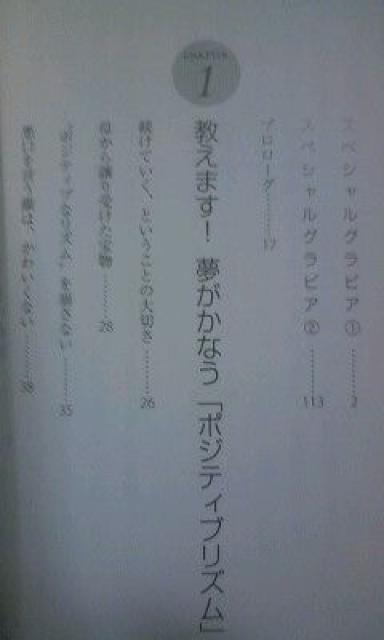 スペシャルグラビア①………2
スペシャルグラビア②………113
プロローグ………17
CHAPTER
1
教えます！ 夢がかなう「ポジティブリズム」
続けていく、ということの大切さ………26
母から譲り受けた宝物………28
"ポジティブなリズム"を崩さない………35
悪口を言う顔は、かわいくない………38